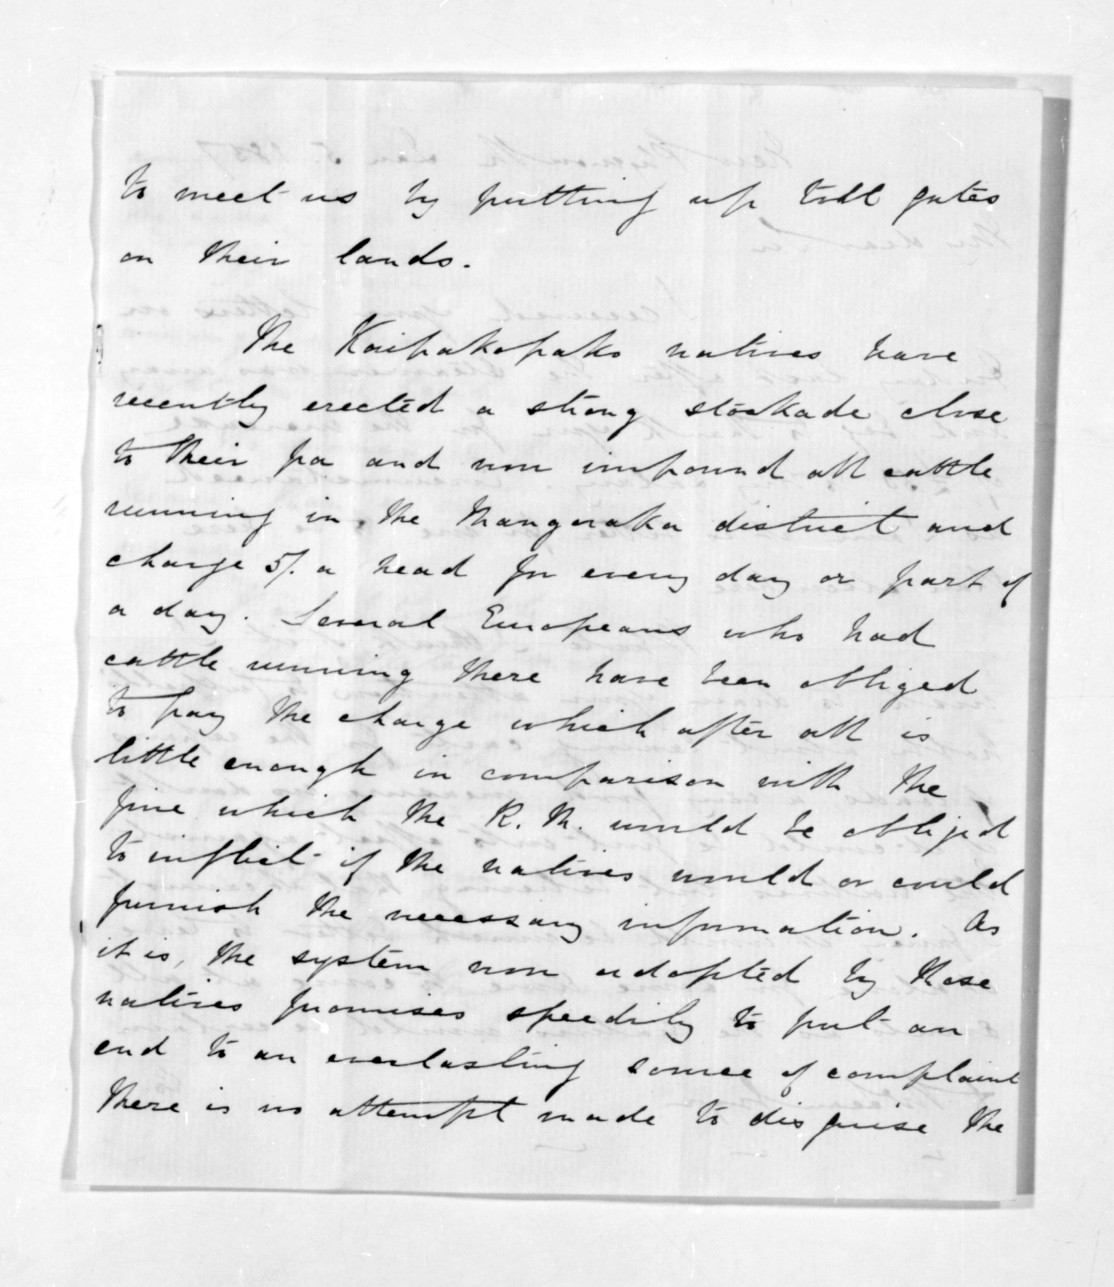 to meet us by putting up toll gates
on their lands.
The Kaipakopako natives have
recently erected a strong stockade close
to their pa and now impound all cattle
running in the Mangoraka district and
charge 5/. a head for every day or part of
a day. Several Europeans who had
cattle running there have been obliged
to pay the charge which after all is
little enough in comparison with the
fine which the R. M. would be obliged
to inflict if the natives would or could
furnish the necessary information. As
it is, the system now adopted by these
natives promises speedily to put an
end to an everlasting source of complaint
There is no attempt made to disguise the